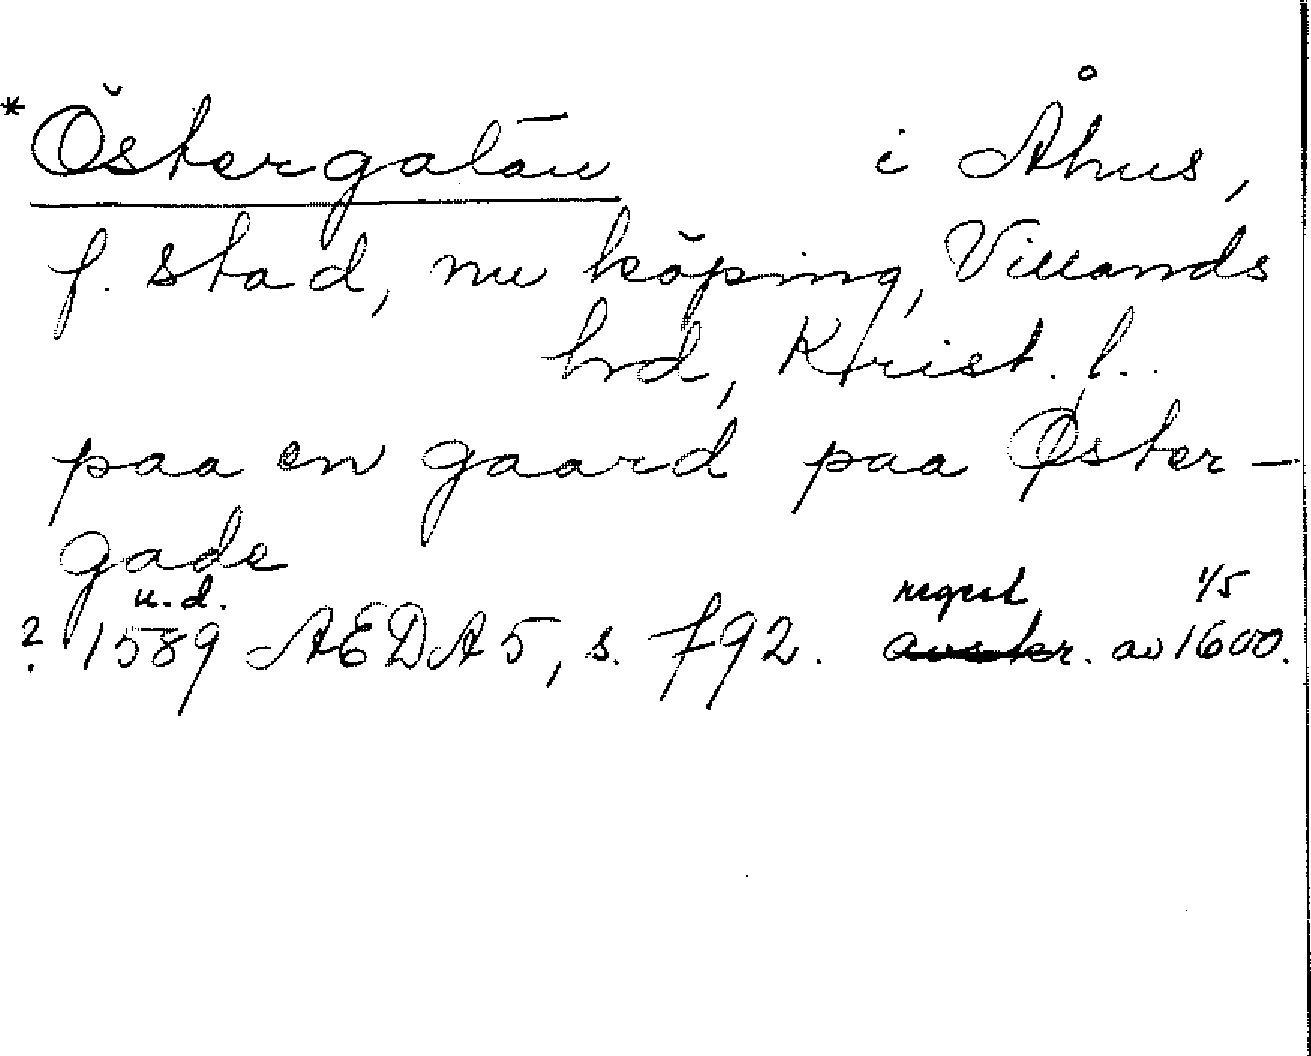 *Östergatan i Åhus,
f. stad, nu köping, Villands
hrd, Krist. l..
paa en gaard paa Øster-
gade
u.d. regest 1/5
? 1589 AEDA 5, s. 792. avskr. av 1600.